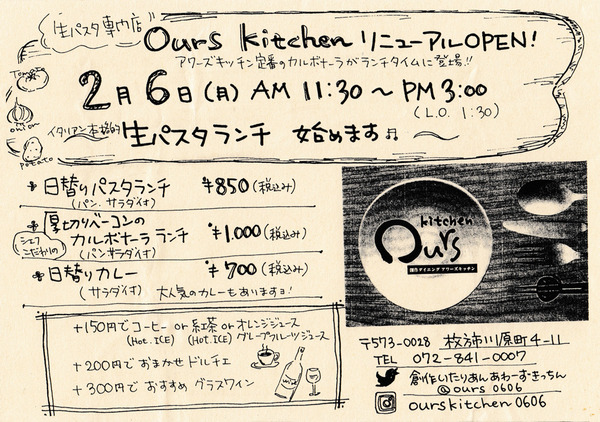 生パスタ専門店
Ours kitchen リニューアルOPEN!
アワーズキッチン定番のカルボナーラがランチタイムに登場!!
2月6日(月) AM 11:30 ~ PM 3:00
(L.O. 1:30)
イタリアン本格的 生パスタランチ 始めます♫
Tomato
onion
potato
日替りパスタランチ ¥850(税込み)
(パン、サラダ付)
厚切りベーコンの
シェフこだわりの カルボナーラ ランチ ¥1.000(税込み)
(パン・サラダ付)
日替りカレー ¥700(税込み)
(サラダ付) 大人気のカレーもありますヨ!
+150円でコーヒー or 紅茶 or オレンジジュース
(Hot. ICE) (Hot. ICE) グレープフルーツジュース
+200円で おまかせ ドルチェ
+300円で おすすめ グラスワイン
kitchen
Ours
創作ダイニング アワーズキッチン
〒573-0028 枚方市川原町4-11
TEL 072-841-0007
創作いたりあんあわーずきっちん
@ours 0606
ourskitchen0606